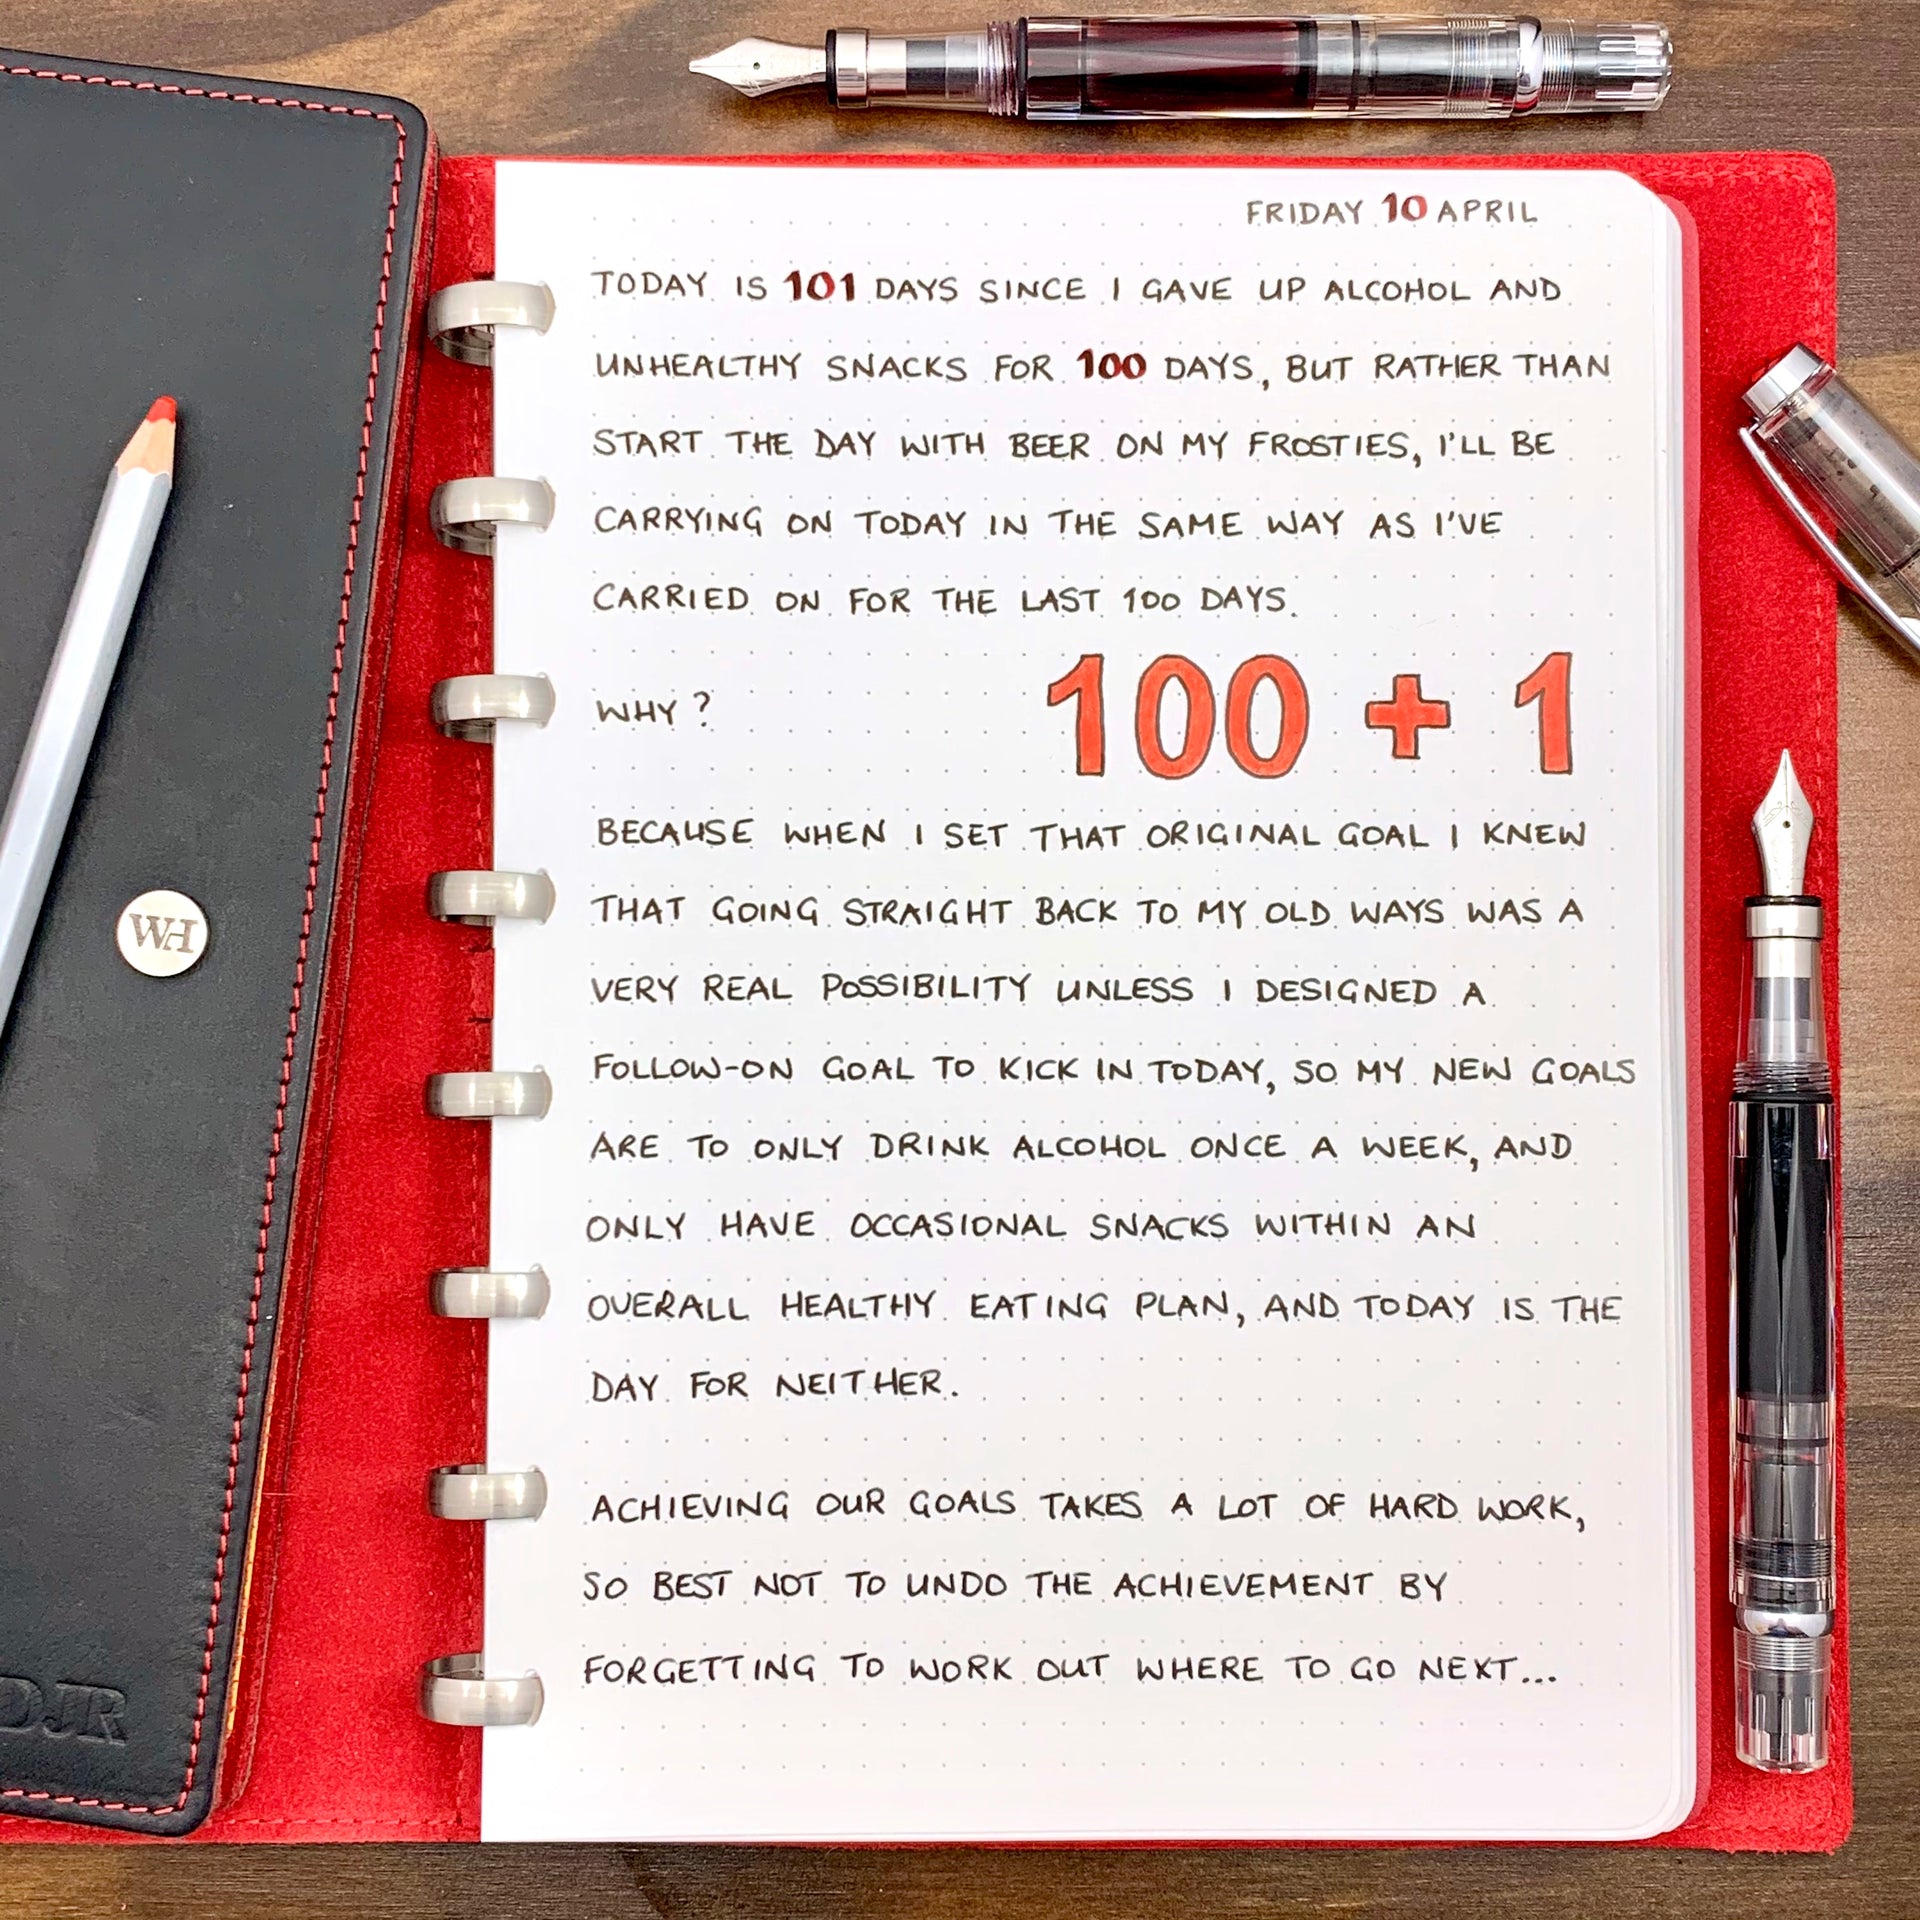 FRIDAY 10 APRIL
TODAY IS 101 DAYS SINCE I GAVE UP ALCOHOL AND
UNHEALTHY SNACKS FOR 100 DAYS, BUT RATHER THAN
START THE DAY WITH BEER ON MY FROSTIES, I'LL BE
CARRYING ON TODAY IN THE SAME WAY AS I'VE
CARRIED ON FOR THE LAST 100 DAYS.
WHY?
100 + 1
BECAUSE WHEN I SET THAT ORIGINAL GOAL I KNEW
THAT GOING STRAIGHT BACK TO MY OLD WAYS WAS A
VERY REAL POSSIBILITY UNLESS I DESIGNED A
FOLLOW-ON GOAL TO KICK IN TODAY, SO MY NEW GOALS
ARE TO ONLY DRINK ALCOHOL ONCE A WEEK, AND
ONLY HAVE OCCASIONAL SNACKS WITHIN AN
OVERALL HEALTHY EATING PLAN, AND TODAY IS THE
DAY FOR NEITHER.
ACHIEVING OUR GOALS TAKES A LOT OF HARD WORK,
SO BEST NOT TO UNDO THE ACHIEVEMENT BY
FORGETTING TO WORK OUT WHERE TO GO NEXT...
WH
DJR